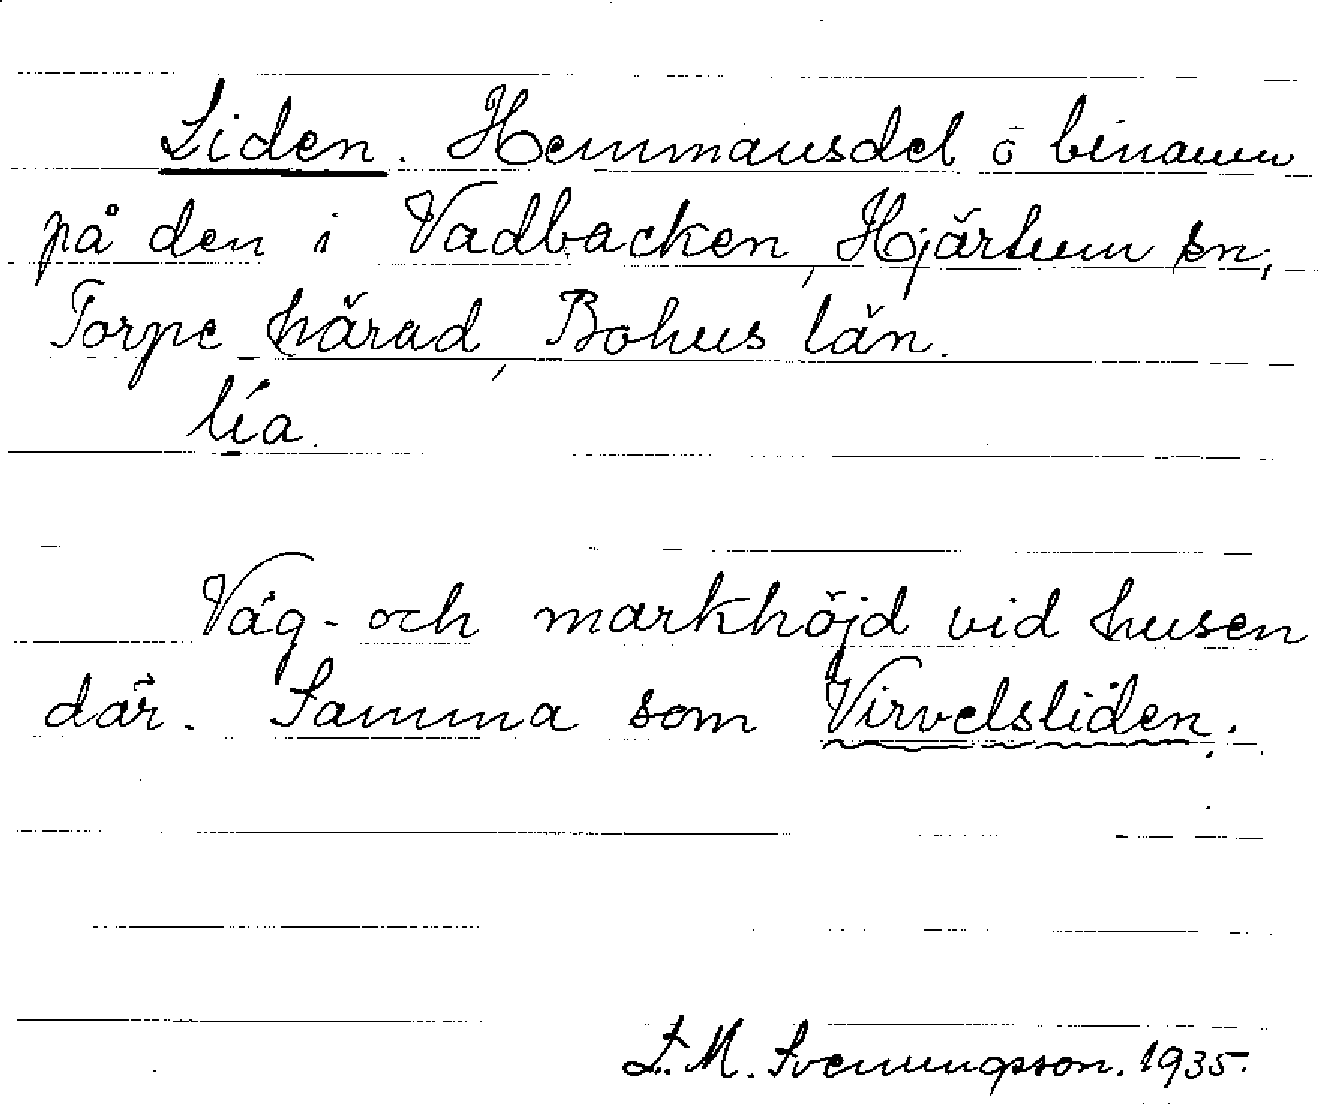 Liden. Hemmansdel ö binamn
på den i Vadbacken, Hjärtum sn,
Torpe härad, Bohus län.
lía.
Väg- och markhöjd vid husen
där. Samma som Virvelsliden.
L. M. Svenungsson. 1935.